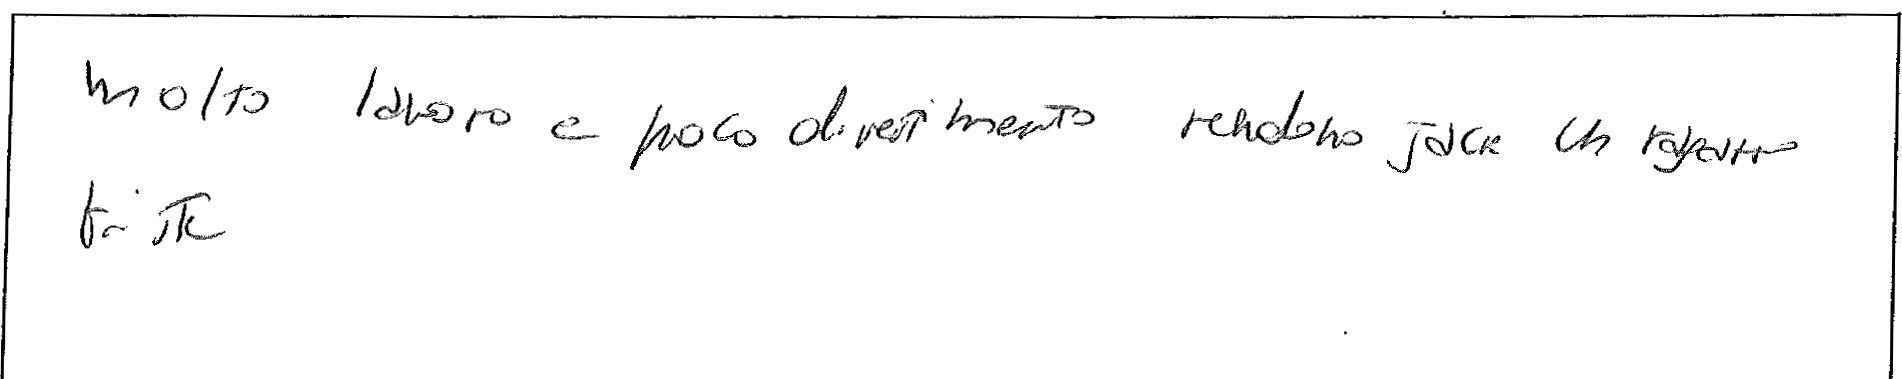 molto lavoro e poco divertimento rendono jack un ragazzo
triste